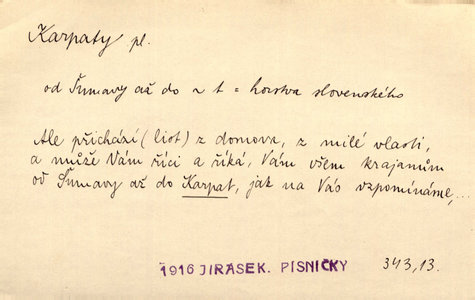 Karpaty pl.
od Šumavy až do ~ t = horstva slovenského
Ale přichází (list) z domova, z milé vlasti,
a může Vám říci a říká, Vám všem krajanům
od Šumavy až do Karpat, jak na Vás vzpomínáme,...
1916 JIRASEK. PISNIČKY 343,13.